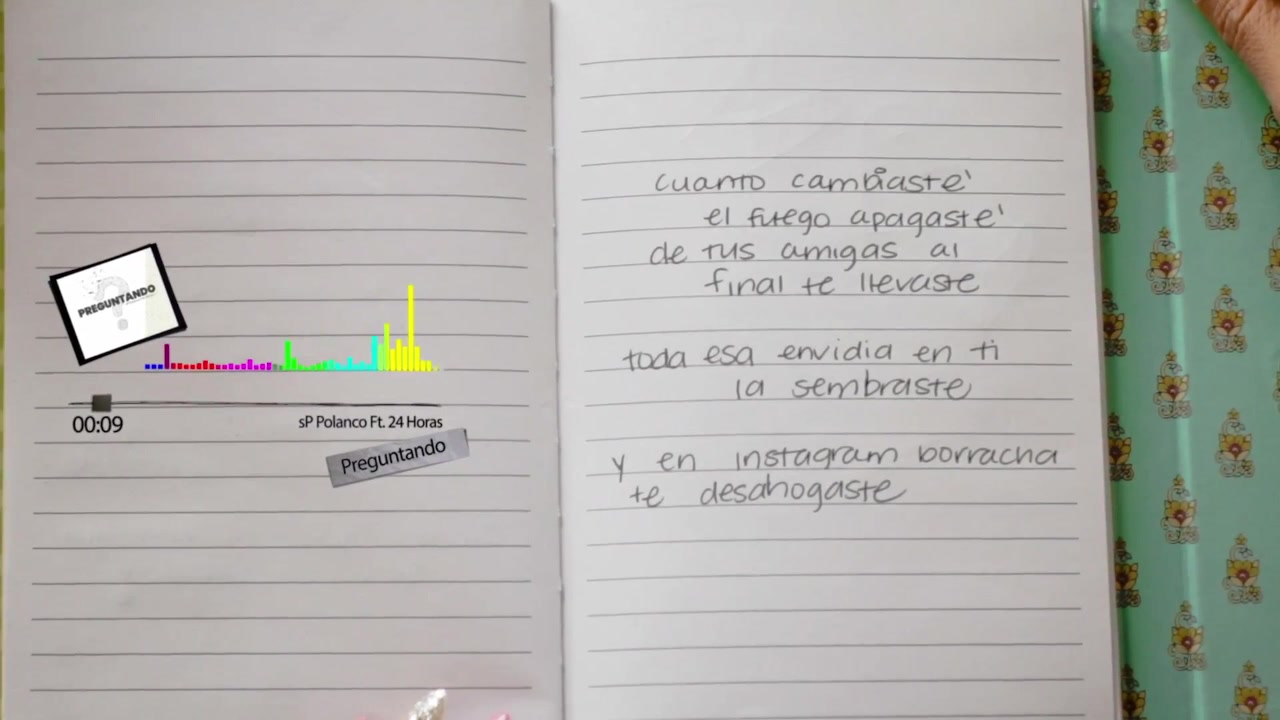 PREGUNTANDO
00:09
sP Polanco Ft. 24 Horas
Preguntando
cuanto cambiaste'
el fuego apagaste'
de tus amigas al
final te llevaste
toda esa envidia en ti
la sembraste
y en instagram borracha
te desahogaste